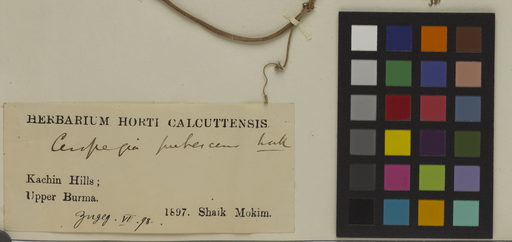 HERBARIUM HORTI CALCUTTENSIS.
Ceropegia pubescens Wall
Kachin Hills;
Upper Burma.
1897. Shaik Mokim.